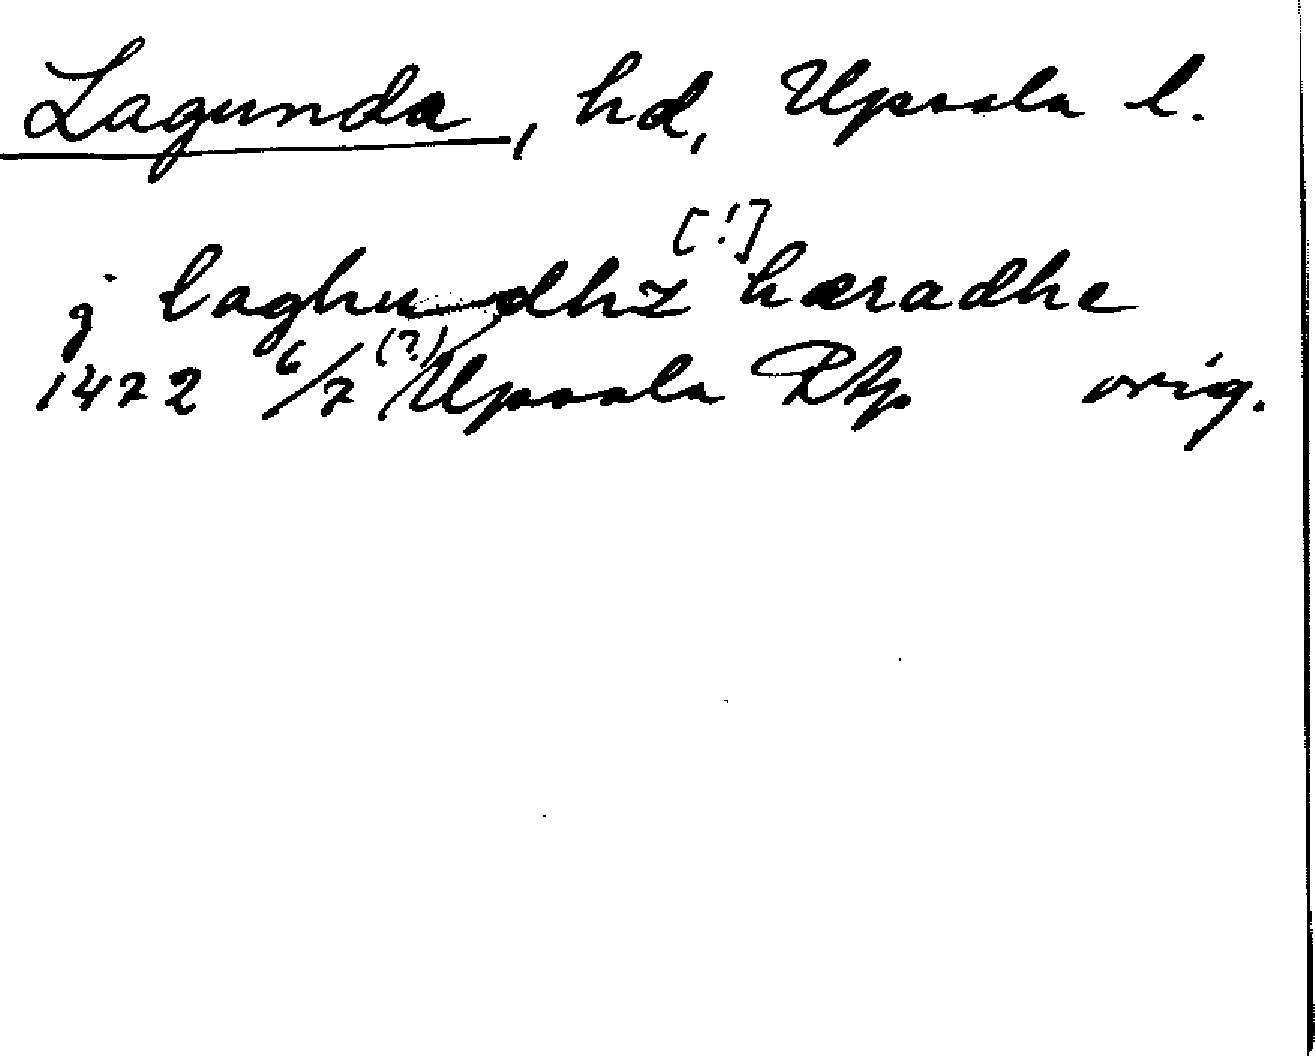 Lagunda, hd, Upsala l.
j laghudhz [!] hæradhe
1422 6/7 (?) Upsala Rkp orig.